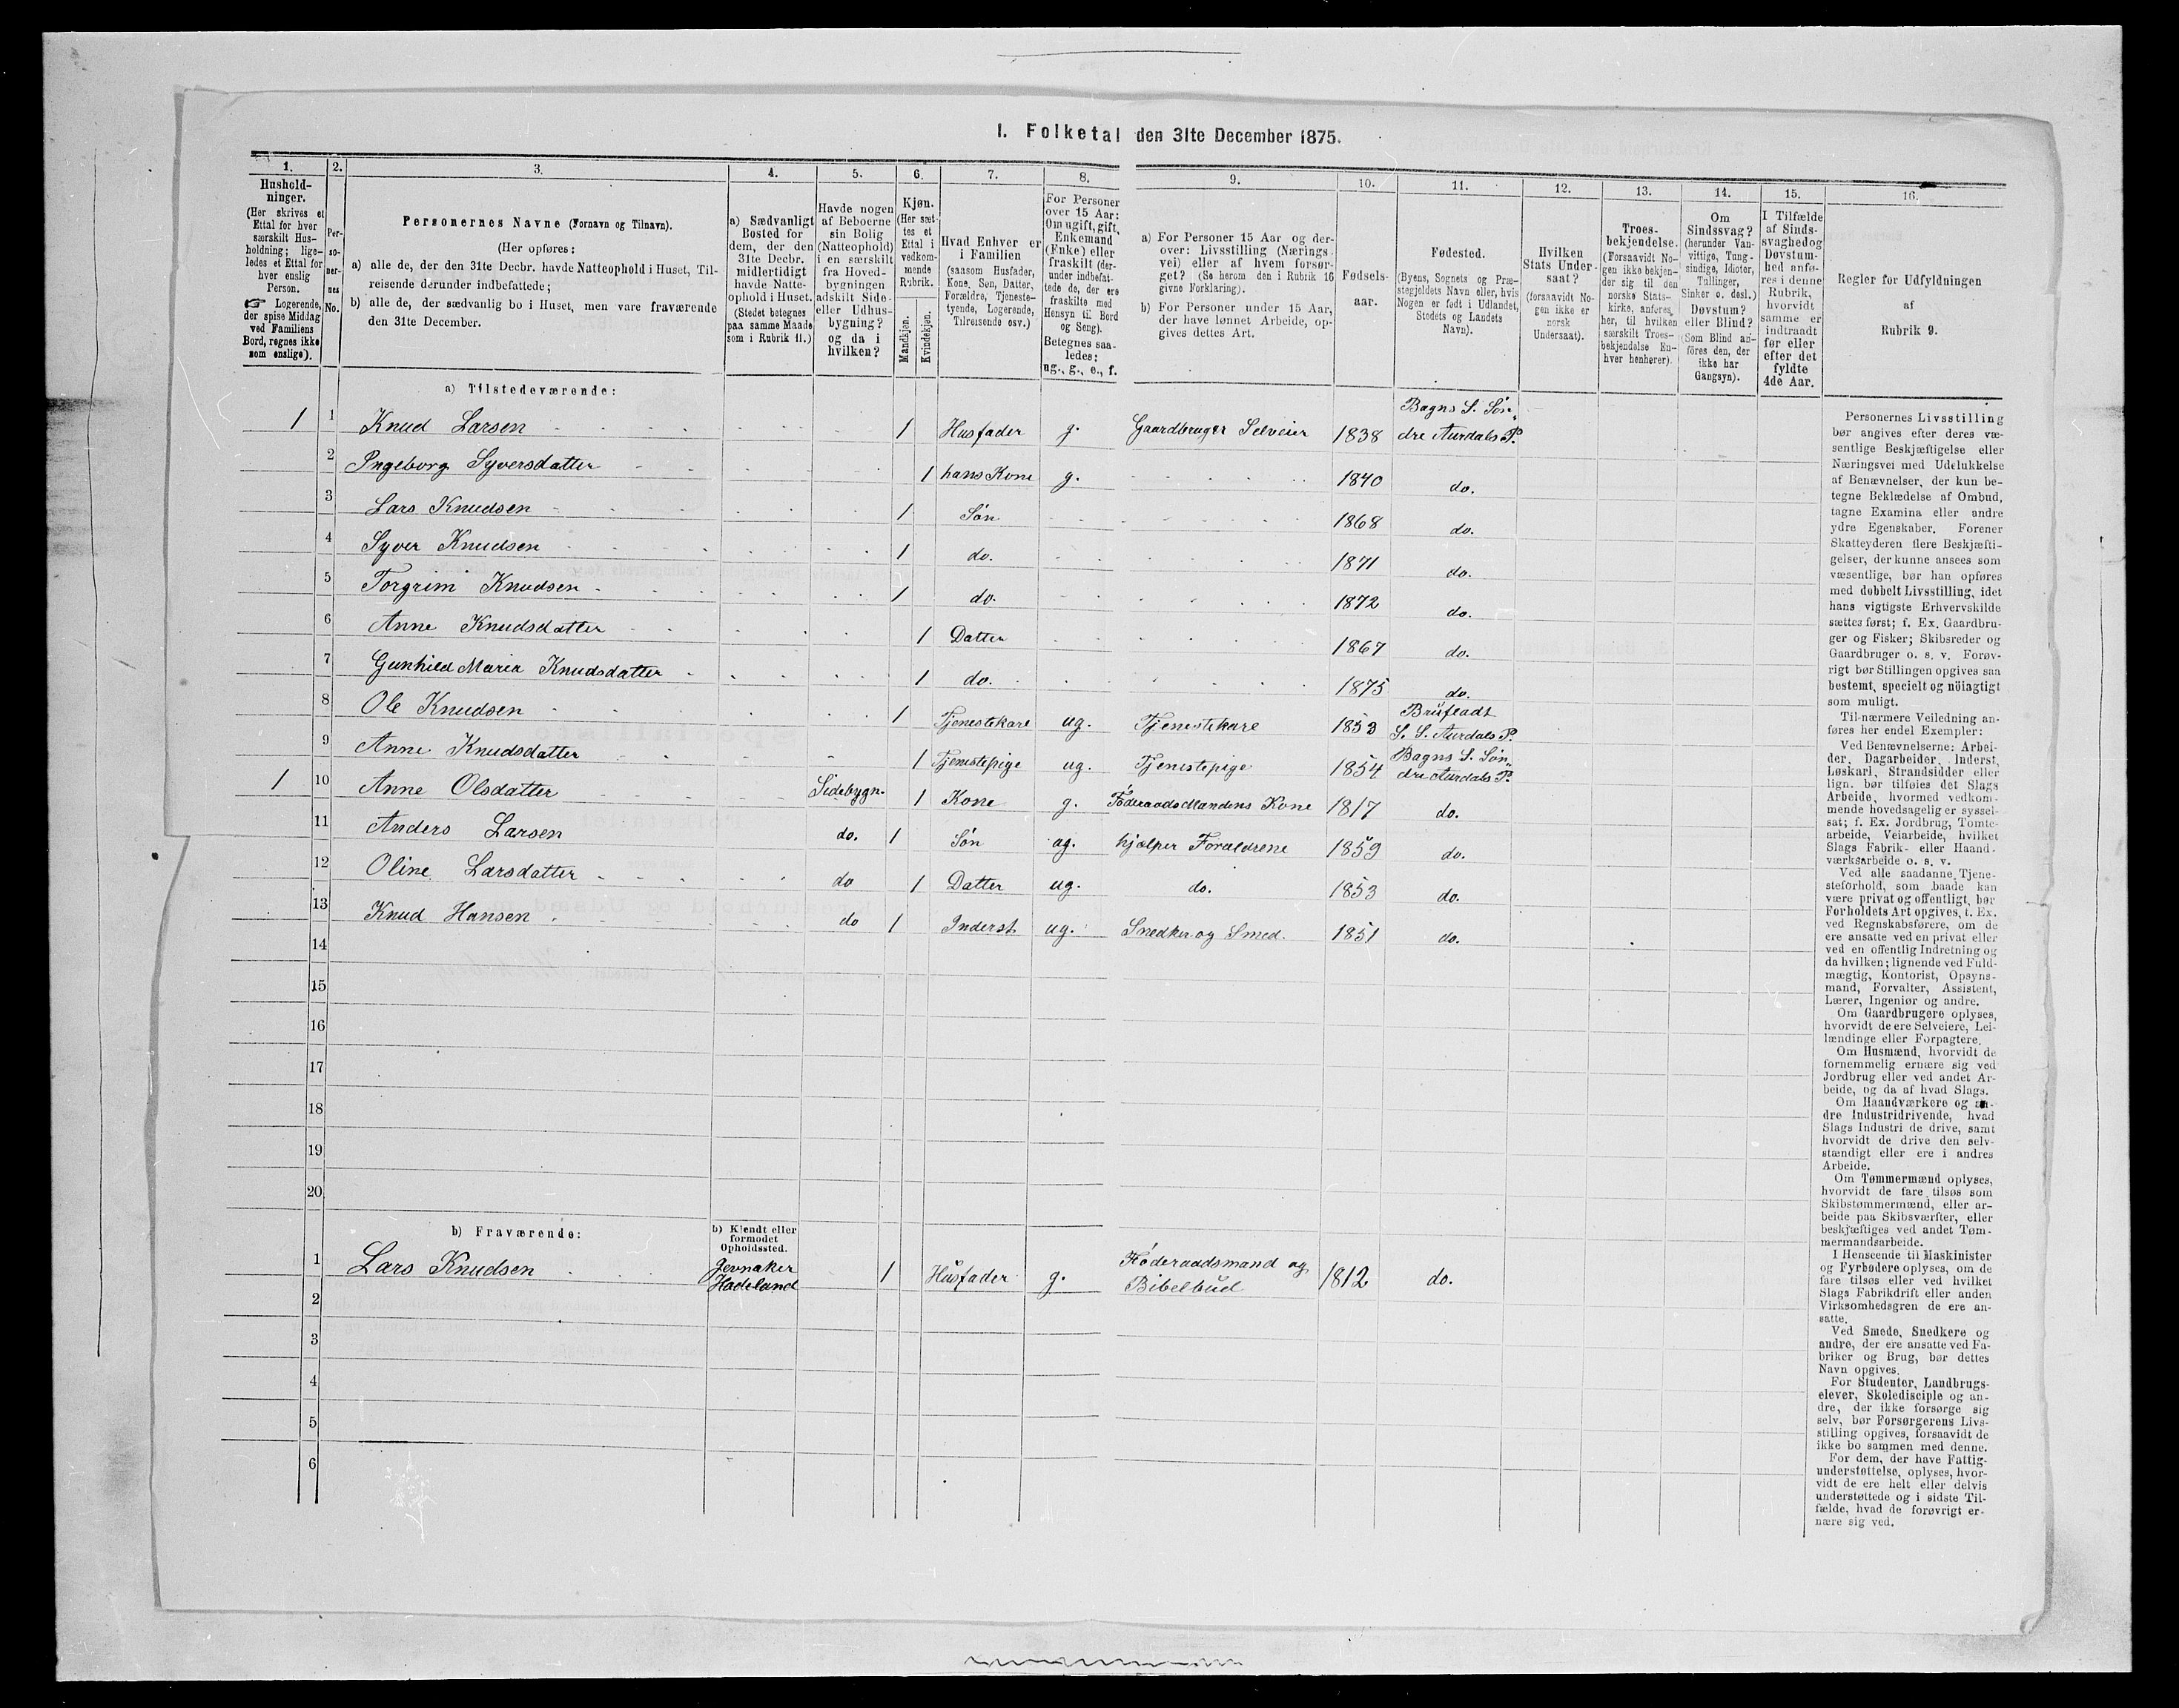 1. Folketal den 31te December 1875.
1. 2. 3. 4. 5. 6. 7. 8. 9. 10. 11. 12. 13. 14. 15. 16.
Hushold-
ninger.
(Her skrives et
Ettal for hver
særskilt Hus-
holdning; lige-
ledes et Ettal for
hver enslig
Person.
☞ Logerende,
der spise Middag
ved Familiens
Bord, regnes ikke
som enslige).
Per-
so-
ner-
nes
No.
Personernes Navne (Fornavn og Tilnavn).
(Her opføres:
a) alle de, der den 31te Decbr. havde Natteophold i Huset, Til-
reisende derunder indbefattede;
b) alle de, der sædvanlig bo i Huset, men vare fraværende
den 31te December.
a) Sædvanligt
Bosted for
dem, der den
31te Decbr.
midlertidigt
havde Natte-
ophold i Huset.
(Stedet betegnes
paa samme Maade
som i Rubrik 11.)
Havde nogen
af Beboerne
sin Bolig
(Natteophold)
i en særskilt
fra Hoved-
bygningen
adskilt Side-
eller Udhus-
bygning?
og da i
hvilken?
Kjøn.
(Her sæt-
tes et
Ettal i
vedkom-
mende
Rubrik.
Mandkjøn.
Kvindekjøn.
Hvad Enhver er
i Familien
(saasom Husfader,
Kone, Søn, Datter,
Forældre, Tjeneste-
tyende, Logerende,
Tilreisende osv.)
For Personer
over 15 Aar:
Om ugift, gift,
Enkemand
(Enke) eller
fraskilt (der-
under indbefat-
tede de, der ere
fraskilte med
Hensyn til Bord
og Seng).
Betegnes saa-
ledes:
ug., g., e., f.
a) For Personer 15 Aar og der-
over: Livsstilling (Nærings-
vei) eller af hvem forsør-
get? (Se herom den i Rubrik 16
givne Forklaring).
b) For Personer under 15 Aar,
der have lønnet Arbeide, op-
gives dettes Art.
Fødsels-
aar.
Fødested.
(Byens, Sognets og Præ-
stegjeldets Navn eller, hvis
Nogen er født i Udlandet,
Stedets og Landets
Navn).
Hvilken
Stats Under-
saat?
(forsaavidt No-
gen ikke er
norsk
Undersaat).
Troes-
bekjendelse.
(Forsaavidt No-
gen ikke bekjen-
der sig til den
norske Stats-
kirke, anføres
her, til hvilken
særskilt Troes-
bekjendelse En-
hver henhører).
Om
Sindssvag?
(herunder Van-
vittige, Tung-
sindige, Idioter,
Tullinger,
Sinker o. desl.)
Døvstum?
eller Blind?
(Som Blind an-
føres den, der
ikke har
Gangsyn).
I Tilfælde
af Sinds-
svaghed og
Døvstum-
hed anfø-
res i denne
Rubrik,
hvorvidt
samme er
indtraadt
før eller
efter det
fyldte
4de Aar.
Regler for Udfyldningen
af
Rubrik 9.
a) Tilstedeværende:
1 1 Knud Larsen 1 Husfader g. Gaardbruger Selveier 1838 Bagns S. Søn-
dre Aurdals P.
2 Ingeborg Syversdatter 1 hans Kone g. 1840 do.
3 Lars Knudsen 1 Søn 1868 do.
4 Syver Knudsen 1 do. 1871 do.
5 Torgrim Knudsen 1 do. 1872 do.
6 Anne Knudsdatter 1 Datter 1867 do.
7 Gunhild Maria Knudsdatter 1 do. 1875 do.
8 Ole Knudsen 1 Tjenestekarl ug. Tjenestekarl 1853 Brufladt
S. S. Aurdals P.
9 Anne Knudsdatter 1 Tjenestepige ug. Tjenestepige 1854 Bagns S. Søn-
dre Aurdals P.
1 10 Anne Olsdatter Sidebygn. 1 Kone g. Föderaads Mandens Kone 1817 do.
11 Anders Larsen do. 1 Søn ug. hjelper Forældrene 1859 do.
12 Oline Larsdatter do 1 Datter ug. do. 1853 do.
13 Knud Hansen do 1 Inderst ug. Snedker og Smed. 1851 do.
14
15
16
17
18
19
20
b) Fraværende:
b) Kjendt eller
formodet
Opholdssted.
1 Lars Knudsen Jevnaker
Hadeland 1 Husfader g. Föderaadsmand og
Bibelbud 1812 do.
2
3
4
5
6
Personernes Livsstilling
bør angives efter deres væ-
sentlige Beskjæftigelse eller
Næringsvei med Udelukkelse
af Benævnelser, der kun be-
tegne Beklædelse af Ombud,
tagne Examina eller andre
ydre Egenskaber. Forener
Skatteyderen flere Beskjæfti-
gelser, der kunne ansees som
væsentlige, bør han opføres
med dobbelt Livsstilling, idet
hans vigtigste Erhvervskilde
sættes først; f. Ex. Gaardbru-
ger og Fisker; Skibsreder og
Gaardbruger o. s. v. Forøv-
rigt bør Stillingen opgives saa
bestemt, specielt og nöiagtigt
som muligt.
Til nærmere Veiledning an-
føres her endel Exempler:
Ved Benævnelserne: Arbei-
der, Dagarbeider, Inderst,
Løskarl, Strandsidder eller
lign. bør tilføies det Slags
Arbeide, hvormed vedkom-
mende hovedsagelig er syssel-
sat; f. Ex. Jordbrug, Tomte-
arbeide, Veiarbeide, hvilket
Slags Fabrik- eller Haand-
værksarbeide o. s. v.
Ved alle saadanne Tjene-
steforhold, som baade kan
være privat og offentligt, bør
Forholdets Art opgives, f. Ex.
ved Regnskabsførere, om de
ere ansatte ved en privat eller
ved en offentlig Indretning og
da hvilken; lignende ved Fuld-
mægtig, Kontorist, Opsyns-
mand, Forvalter, Assistent,
Lærer, Ingeniør og andre.
Om Gaardbrugere oplyses,
hvorvidt de ere Selveiere, Lei-
lændinge eller Forpagtere.
Om Husmænd, hvorvidt de
fornemmelig ernære sig ved
Jordbrug eller ved andet Ar-
beide, og da af hvad Slags.
Om Haandværkere og an-
dre Industridrivende, hvad
Slags Industri de drive, samt
hvorvidt de drive den selv-
stændigt eller ere i andres
Arbeide.
Om Tømmermænd oplyses,
hvorvidt de fare tilsøs som
Skibstømmermænd, eller ar-
beide paa Skibsværfter, eller
beskjæftiges ved andet Tøm-
mermandsarbeide.
I Henseende til Maskinister
og Fyrbødere oplyses, om de
fare tilsøs eller ved hvilket
Slags Fabrikdrift eller anden
Virksomhedsgren de ere an-
satte.
Ved Smede, Snedkere og
andre, der ere ansatte ved Fa-
briker og Brug, bør dettes
Navn opgives.
For Studenter, Landbrugs-
elever, Skoledisciple og an-
dre, der ikke forsørge sig
selv, bør Forsørgerens Livs-
stilling opgives, forsaavidt de
ikke bo sammen med denne.
For dem, der have Fattig-
understøttelse, oplyses, hvor-
vidt de ere helt eller delvis
understøttede og i sidste Til-
fælde, hvad de forøvrigt er-
nære sig ved.